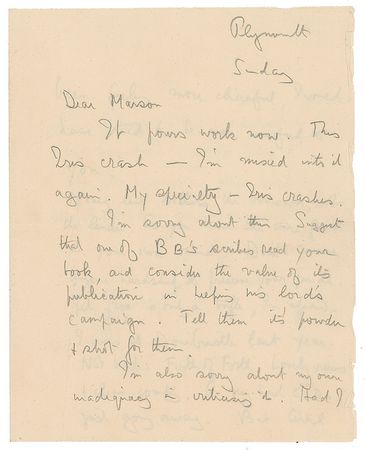 Plymouth
Sunday
Dear Manson
It pours work now. This
Iris crash — I'm mixed into it
again. My specialty — Iris crashes.
I'm sorry about this. Suggest
that one of BB's scribes read your
book, and consider the value of its
publication in helping his lord's
campaign. Tell them it's powder
+ shot for them
I'm also sorry about my own
inadequacy in criticising it. Had I